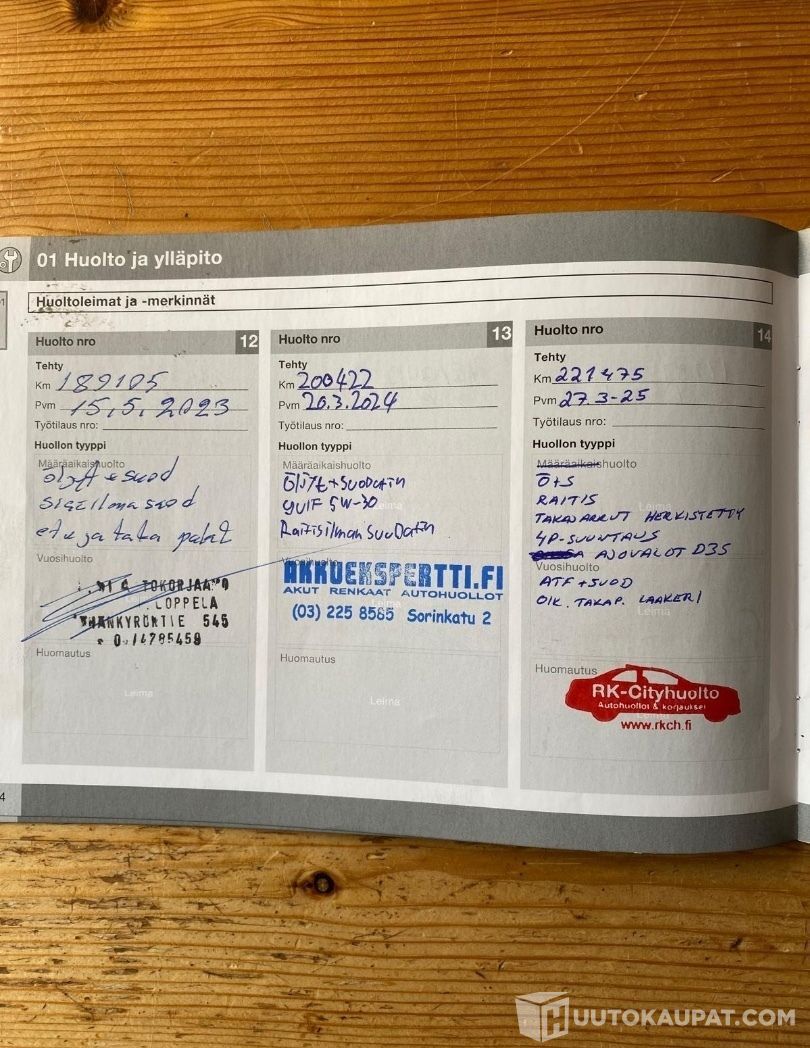 01 Huolto ja ylläpito
Huoltoleimat ja -merkinnät
Huolto nro 12
Tehty
Km 189105
Pvm 15.5.2023
Työtilaus nro:
Huollon tyyppi
Määräaikaishuolto
öljyt + suod
sisäilmasuod
etu ja taka palat
Vuosihuolto
TOKORJAAMO
LOPPELA
KYRÖNTIE 545
Huomautus
Leima
Huolto nro 13
Tehty
Km 200422
Pvm 20.3.2024
Työtilaus nro:
Huollon tyyppi
Määräaikaishuolto
ÖLJYT+SUODATIN
GULF 5W-30
Leima
Raitisilman SuoDatin
Vuosihuolto
AKKUEKSPERTTI.FI
AKUT RENKAAT AUTOHUOLLOT
(03) 225 8585 Sorinkatu 2
Huomautus
Leima
Huolto nro 14
Tehty
Km 221475
Pvm 27.3-25
Työtilaus nro:
Huollon tyyppi
Määräaikaishuolto
Ö+S
RAITIS
Leima
TAKAJARRUT HERKISTETTY
4P-SUUNTAUS
AJOVALOT D3S
Vuosihuolto
ATF + SUOD
OIK. TAKAP. LAAKERI
Huomautus
RK-Cityhuolto
Autohuollot & korjaukset
Leima
www.rkch.fi
4
HUUTOKAUPAT.COM